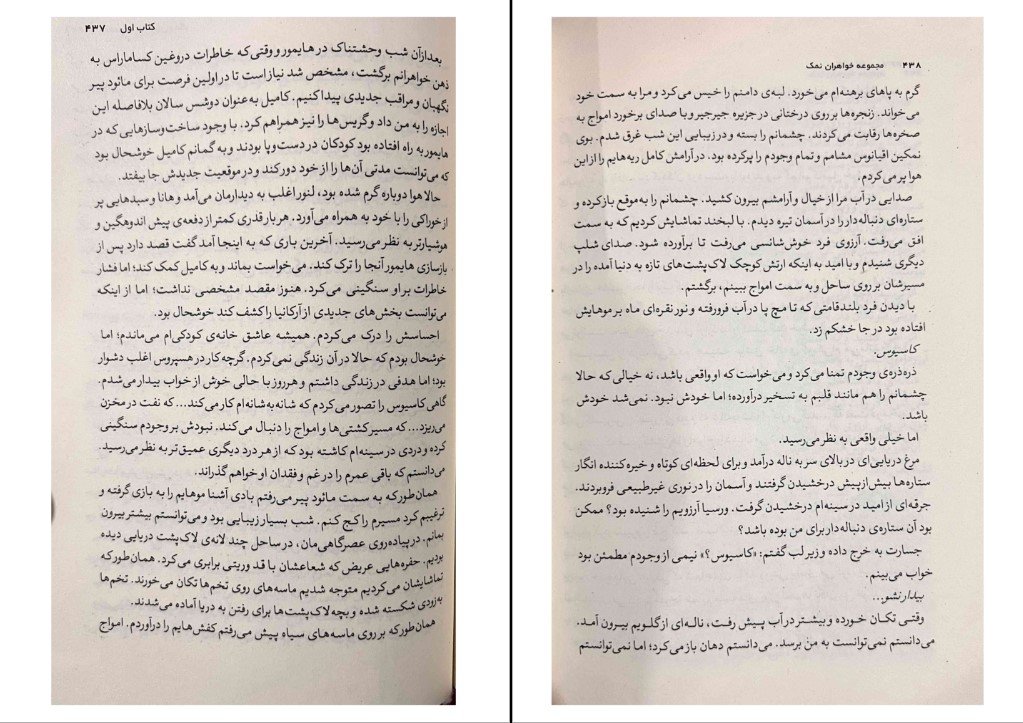 کتاب اول ۴۳۷
بعدازآن شب وحشتناک در هایمور و وقتی‌که خاطرات دروغین کساماراس به
ذهن خواهرانم برگشت، مشخص شد نیاز است تا در اولین فرصت برای مائود پیر
نگهبان و مراقب جدیدی پیدا کنیم. کامیل به‌عنوان دوشس سالان بلافاصله این
اجازه را به من داد و گریس‌ها را نیز همراهم کرد. با وجود ساخت‌وسازهایی که در
هایمور به راه افتاده بود کودکان در دست‌وپا بودند و به گمانم کامیل خوشحال بود
که می‌توانست مدتی آن‌ها را از خود دور کند و در موقعیت جدیدش جا بیفتد.
حالا هوا دوباره گرم شده بود، لنور اغلب به دیدارمان می‌آمد و هانا و سبدهایی پر
از خوراکی را با خود به همراه می‌آورد. هر بار قدری کمتر از دفعه‌ی پیش اندوهگین و
هوشیارتر به نظر می‌رسید. آخرین باری که به اینجا آمد گفت قصد دارد پس از
بازسازی هایمور آنجا را ترک کند. می‌خواست بماند و به کامیل کمک کند؛ اما فشار
خاطرات بر او سنگینی می‌کرد. هنوز مقصد مشخصی نداشت؛ اما از اینکه
می‌توانست بخش‌های جدیدی از آرکانیا را کشف کند خوشحال بود.
احساسش را درک می‌کردم. همیشه عاشق خانه‌ی کودکی‌ام می‌ماندم؛ اما
خوشحال بودم که حالا در آن زندگی نمی‌کردم. گرچه کار در هسپروس اغلب دشوار
بود؛ اما هدفی در زندگی داشتم و هر روز با حالی خوش از خواب بیدار می‌شدم.
گاهی کاسیوس را تصور می‌کردم که شانه‌به‌شانه‌ام کار می‌کند... که نفت در مخزن
می‌ریزد... که مسیر کشتی‌ها و امواج را دنبال می‌کند. نبودش بر وجودم سنگینی
کرده و دردی در سینه‌ام کاشته بود که از هر درد دیگری عمیق‌تر به نظر می‌رسید.
می‌دانستم که باقی عمرم را در غم و فقدان او خواهم گذراند.
همان‌طور که به سمت مائود پیر می‌رفتم بادی آشنا موهایم را به بازی گرفته و
ترغیبم کرد مسیرم را کج کنم. شب بسیار زیبایی بود و می‌توانستم بیشتر بیرون
بمانم. در پیاده‌روی عصرگاهی‌مان، در ساحل چند لانه‌ی لاک‌پشت دریایی دیده
بودیم. حفره‌هایی عریض که شعاعشان با قد وریتی برابری می‌کرد. همان‌طور که
تماشایشان می‌کردیم متوجه شدیم ماسه‌های روی تخم‌ها تکان می‌خورند. تخم‌ها
به‌زودی شکسته شده و بچه‌لاک‌پشت‌ها برای رفتن به دریا آماده می‌شدند.
همان‌طور که بر روی ماسه‌های سیاه پیش می‌رفتم کفش‌هایم را درآوردم. امواج
۴۳۸ مجموعه خواهران نمک
گرم به پاهای برهنه‌ام می‌خورد. لبه‌ی دامنم را خیس می‌کرد و مرا به سمت خود
می‌خواند. زنجره‌ها بر روی درختانی در جزیره جیرجیر و با صدای برخورد امواج به
صخره‌ها رقابت می‌کردند. چشمانم را بسته و در زیبایی این شب غرق شدم. بوی
نمکین اقیانوس مشامم و تمام وجودم را پر کرده بود. در آرامش کامل ریه‌هایم را از این
هوا پر می‌کردم.
صدایی در آب مرا از خیال و آرامشم بیرون کشید. چشمانم را به‌موقع باز کرده و
ستاره‌ای دنباله‌دار را در آسمان تیره دیدم. با لبخند تماشایش کردیم که به سمت
افق می‌رفت. آرزوی فرد خوش‌شانسی می‌رفت تا برآورده شود. صدای شلپ
دیگری شنیدم و با امید به اینکه ارتش کوچک لاک‌پشت‌های تازه به دنیا آمده را در
مسیرشان بر روی ساحل و به سمت امواج ببینم، برگشتم.
با دیدن فرد بلندقامتی که تا مچ پا در آب فرورفته و نور نقره‌ای ماه بر موهایش
افتاده بود در جا خشکم زد.
کاسیوس.
ذره‌ذره‌ی وجودم تمنا می‌کرد و می‌خواست که او واقعی باشد، نه خیالی که حالا
چشمانم را هم مانند قلبم به تسخیر درآورده؛ اما خودش نبود. نمی‌شد خودش
باشد.
اما خیلی واقعی به نظر می‌رسید.
مرغ دریایی‌ای در بالای سر به ناله درآمد و برای لحظه‌ای کوتاه و خیره‌کننده انگار
ستاره‌ها بیش‌ازپیش درخشیدن گرفتند و آسمان را در نوری غیرطبیعی فروبردند.
جرقه‌ای از امید در سینه‌ام درخشیدن گرفت. ورسیا آرزویم را شنیده بود؟ ممکن
بود آن ستاره‌ی دنباله‌دار برای من بوده باشد؟
جسارت به خرج داده و زیر لب گفتم: «کاسیوس؟» نیمی از وجودم مطمئن بود
خواب می‌بینم.
بیدار نشو...
وقتی تکان خورده و بیشتر در آب پیش رفت، ناله‌ای از گلویم بیرون آمد.
می‌دانستم نمی‌توانست به من برسد. می‌دانستم دهان باز می‌کرد؛ اما نمی‌توانستم